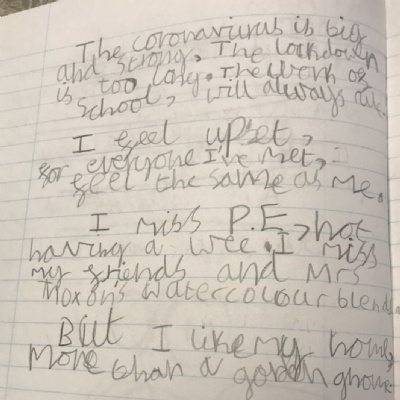 The coronavirus is big
and strong, The lockdown
is too long. The work of
school, will always
I feel upset,
for everyone I've met,
feel the same as me.
I miss P.E, not
having a wee. I miss
my friends and Mrs
Moxon's watercolour blend
But I like my home,
more than a